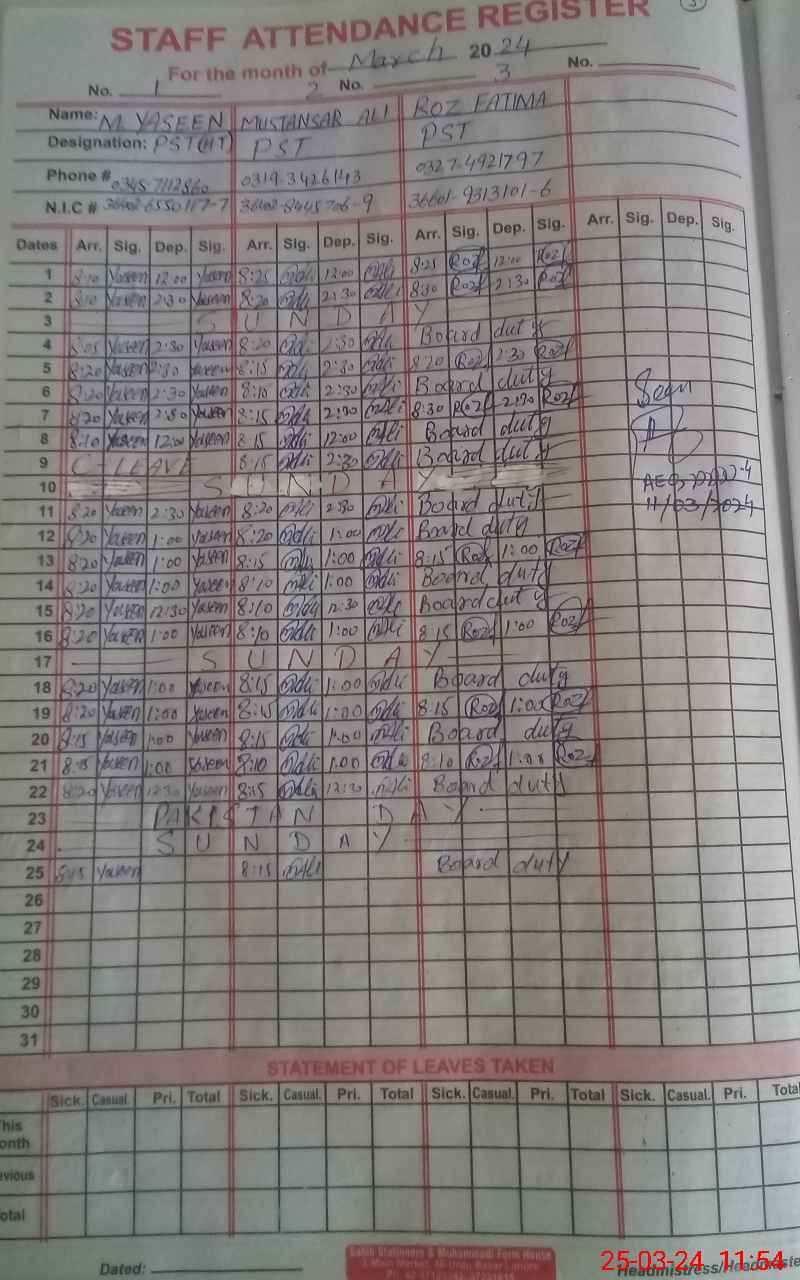 STAFF ATTENDANCE REGISTER
For the month of March 2024
No. 1 2 No. 3 No.
Name: M. YASEEN MUSTANSAR ALI ROZ FATIMA
Designation: PST(HT) PST PST
Phone # 0345-7112860 0319-3426143 0327-4921797
N.I.C # 36402-6550117-7 36402-8445706-9 36601-9313101-6
Dates Arr. Sig. Dep. Sig. Arr. Sig. Dep. Sig. Arr. Sig. Dep. Sig. Arr. Sig. Dep. Sig.
1 8:10 Yaseen 12:00 Yaseen 8:25 12:00 8:25 Rozf 12:00 Rozf
2 8:10 Yaseen 2:30 Yaseen 8:20 2:30 8:30 Rozf 2:30 Rozf
3 S U N D A Y
4 8:05 Yaseen 2:30 Yaseen 8:20 2:30 Board duty
5 8:20 Yaseen 2:30 Yaseen 8:15 2:30 8:20 Rozf 2:30 Rozf
6 8:20 Yaseen 2:30 Yaseen 8:10 2:30 Board duty
7 8:20 Yaseen 2:30 Yaseen 8:15 2:30 8:30 Rozf 2:30 Rozf
8 8:10 Yaseen 12:00 Yaseen 8:15 12:00 Board duty
9 C-LEAVE 8:15 2:30 Board duty
10 S U N D A Y
11 8:20 Yaseen 2:30 Yaseen 8:20 2:30 Board duty
11/03/2024
12 8:20 Yaseen 1:00 Yaseen 8:20 1:00 Board duty
13 8:20 Yaseen 1:00 Yaseen 8:15 1:00 8:15 Rozf 1:00 Rozf
14 8:20 Yaseen 1:00 Yaseen 8:10 1:00 Board duty
15 8:20 Yaseen 12:30 Yaseen 8:10 12:30 Board duty
16 8:20 Yaseen 1:00 Yaseen 8:10 1:00 8:15 Rozf 1:00 Rozf
17 S U N D A Y
18 8:20 Yaseen 1:00 Yaseen 8:15 1:00 Board duty
19 8:20 Yaseen 1:00 Yaseen 8:15 1:00 8:15 Rozf 1:00 Rozf
20 8:15 Yaseen 1:00 Yaseen 8:15 1:00 Board duty
21 8:15 Yaseen 1:00 Yaseen 8:10 1:00 8:10 Rozf 1:00 Rozf
22 8:20 Yaseen 12:30 Yaseen 8:15 12:30 Board duty
23 PAKISTAN DAY
24 S U N D A Y
25 8:15 Yaseen 8:15 Board duty
26
27
28
29
30
31
STATEMENT OF LEAVES TAKEN
Sick. Casual. Pri. Total Sick. Casual. Pri. Total Sick. Casual. Pri. Total Sick. Casual. Pri. Total
This
onth
evious
otal
Dated:
Headmistress/Headmaste
25-03-24 11:54